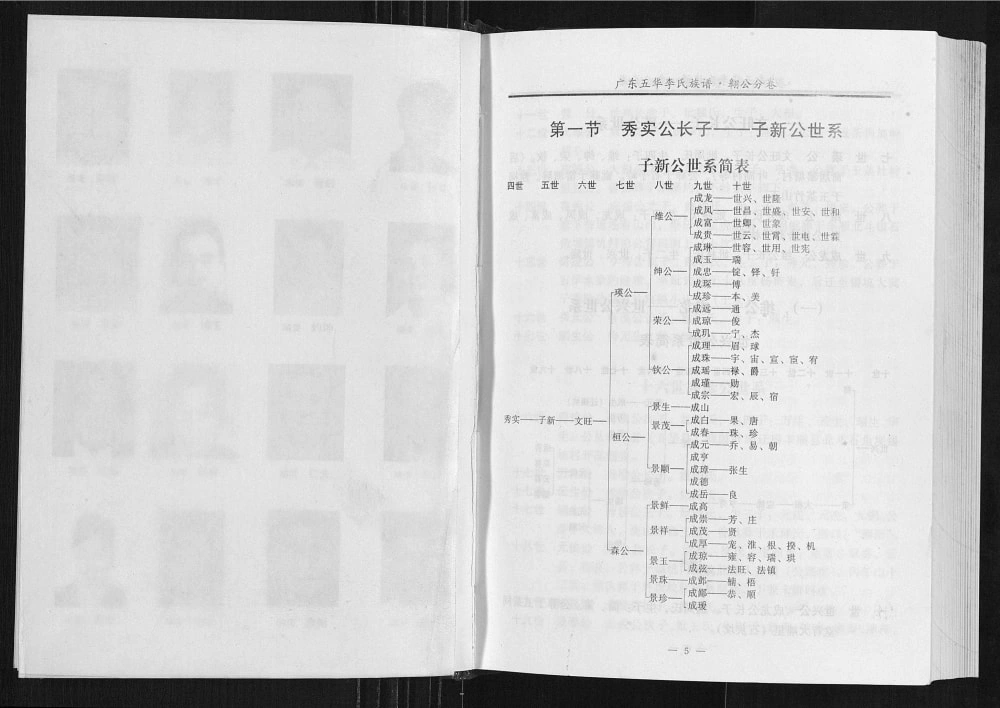 广东五华李氏族谱·翱公分卷
第一节 秀实公长子——子新公世系
子新公世系简表
四世 五世 六世 七世 八世 九世 十世
成龙——世兴、世隆
成凤——世昌、世盛、世安、世和
维公
成富——世卿、世象
成贵——世云、世霄、世电、世霖
成琳——世容、世用、世宪
成玉——瑞
绅公 成忠——锭、铎、钎
成琛——傅
瑛公 成珍——本、美
成远——通
荣公 成琼——俊
成玑——宁、杰
成理——眉、球
成珠——宇、宙、宣、宦、宥
钦公 成瑶——禄、爵
成瑾——勋
成宗——宏、辰、宿
景生——成山
秀实——子新——文旺 成白——果、唐
景茂
成春——珠、珍
桓公 成元——乔、易、朝
成亨
景顺 成璋——张生
成德
成岳——良
景鲜——成高
成崇——芳、庄
景祥 成茂——贤
成厚——宠、淮、根、揆、机
森公
成琼——雍、容、瑞、珙
景玉
成弦——法旺、法镇
景珠——成郎——楠、梧
成鄙——恭、顺
景珍
成瑷
— 5 —